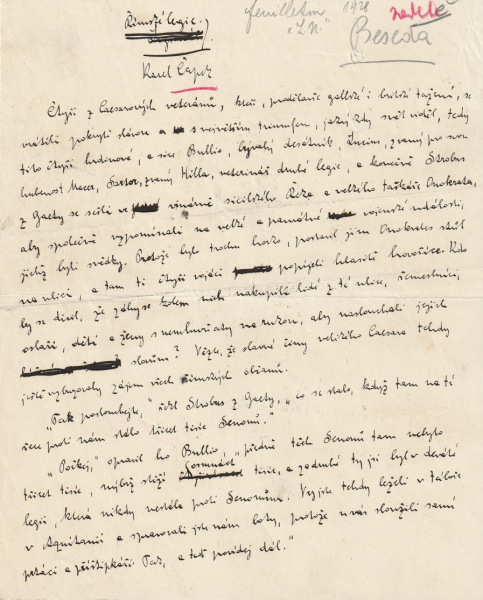 Římské legie.
feuilleton 1928
"L.N."
neděle
Besesta
Karel Čapek
Čtyři z Caesarových veteránů, kteří, prodělavše gallské i britské tažení, se
vrátili pokryti slávou a s největším triumfem, jaký kdy svět viděl, tedy
tito čtyři hrdinové, a sice Bullio, bývalý desátník, Lucius, zvaný pro svou
hubenost Macer, Sartor, zvaný Hilla, veterinář druhé legie, a konečně Strobus
z Gaety se sešli ve vinárně sicilského Řeka a velkého taškáře Onokrata,
aby společně vzpomínali na velké a památné vojenské události,
jichž byli svědky. Protože bylo trochu horko, postavil jim Onokrates stůl
na ulici, a tam ti čtyři vojáci popíjeli hlasitě hovoříce. Kdo
by se divil, že záhy se kolem nich nakupili lidé z té ulice, řemeslníci,
osláři, děti a ženy s nemluvňaty na rukou, aby naslouchali jejich
slovům? Vězte, že slavné činy velikého Caesara tehdy
ještě vzbuzovaly zájem všech římských občanů.
"Tak poslouchejte," řekl Strobus z Gaety, "co se stalo, když tam na té
řece proti nám stálo třicet tisíc Senonů."
"Počkej," opravil ho Bullio, "předně těch Senonů tam nebylo
třicet tisíc, nýbrž stěží osmnáct tisíc, a za druhé ty jsi byl v deváté
legii, která nikdy nestála proti Senonům. Vy jste tehdy leželi v táboře
v Aquitanii a spravovali jste nám boty, protože u vás sloužili samí
ptáci a příštipkáři. Tak, a teď povídej dál."